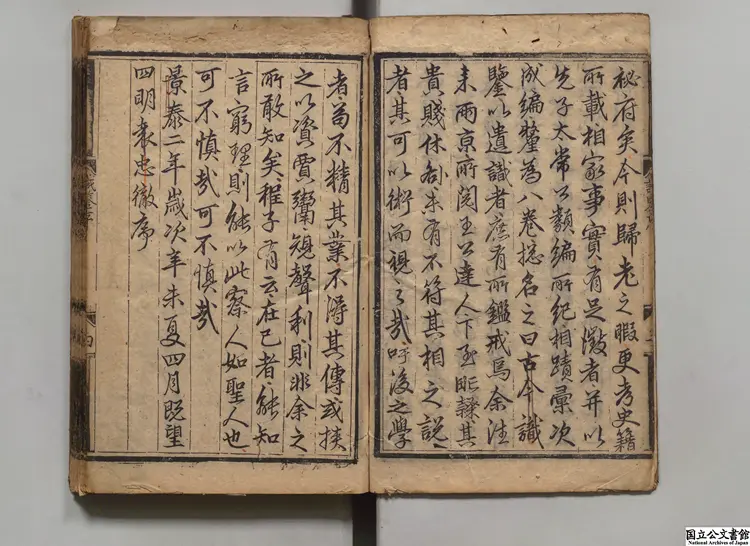 秘府矣今則歸老之暇更考史籍
所載相家事實有足徵者并以
先子太常公類編所紀相蹟彙次
成編釐為八卷總名之曰古今識
鑒以遺識者庶有所鑑戒焉余往
来兩京所閱王公達人下至眇隸其
貴賤休咎未有不符其相之說
者其可以術而視之哉吁後之學
者苟不精其業不得其傳或挾
之以資賈鬻窺聲利則非余之
所敢知矣程子有云在己者能知
言窮理則能以此察人如聖人也
可不慎哉可不慎哉
景泰二年歲次辛未夏四月既望
四明袁忠徹序
国立公文書館
National Archives of Japan